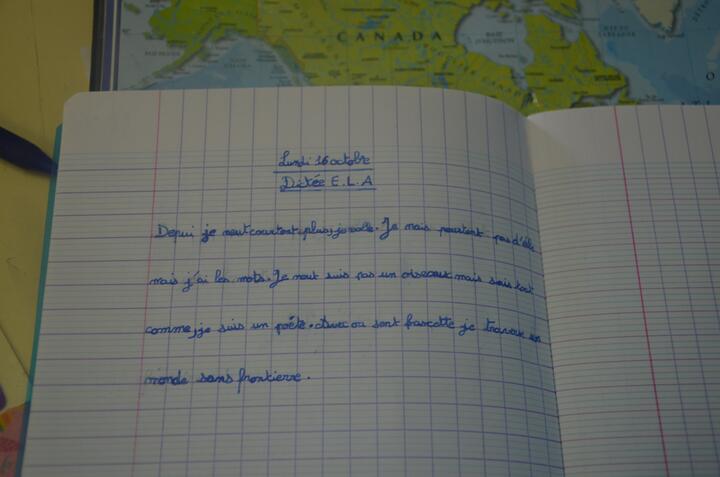 CANADA
Lundi 16 octobre
Dictée E.L.A
Depui je neut courtent plus, je vole. Je nais pourtent pas d'éle
mais j'ai les mots. Je neut suis pas un oiseaux mais sais tout
comme, je suis un poéte. Avec ou sent je travers un
monde sans frontierre.